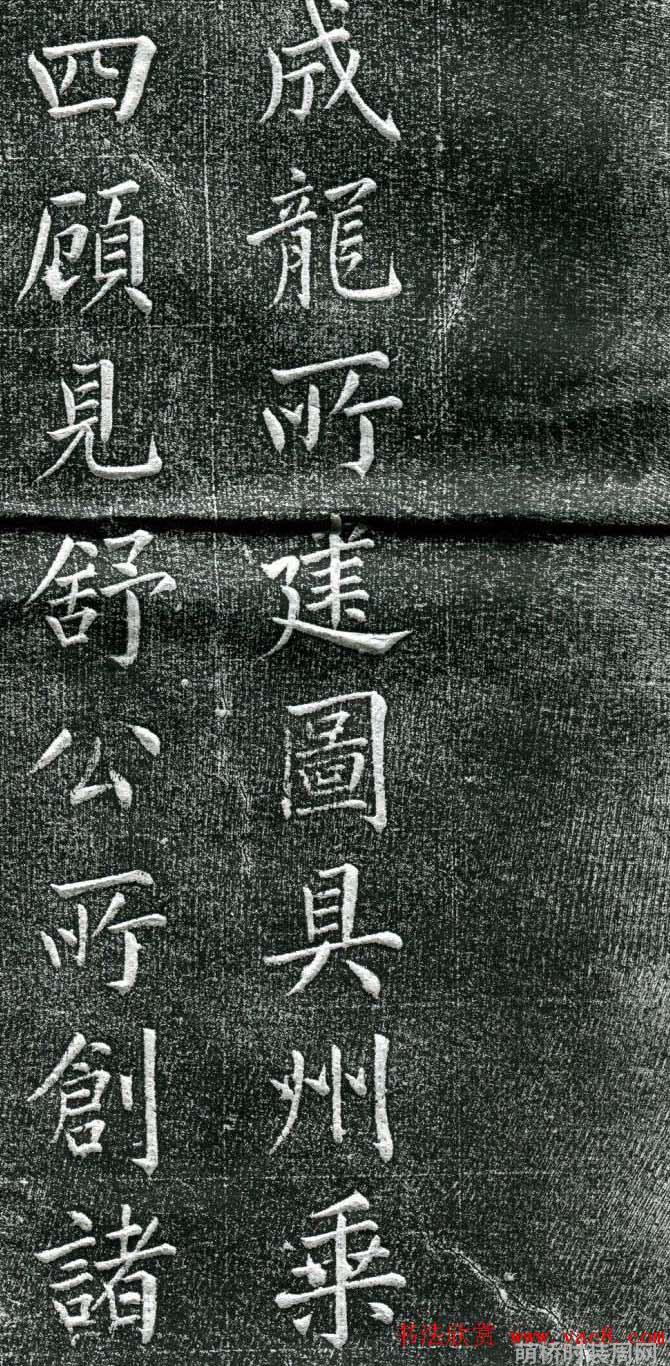 成龍所建圖具州乗
四顧見舒公所創諸
书法欣赏 www.yac8.com